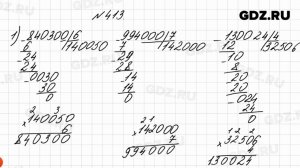 GDZ.RU
№413
1) 840300|6 994000|7 130024|4
6 |140050 7 |142000 12 |32506
24 29 10
24 28 8
0030 14 20
30 14 20
0 0 024
24
0
2 3 2 1 1 2 2
×140050 ×142000 ×32506
6 7 4
840300 994000 130024
GDZ.RU